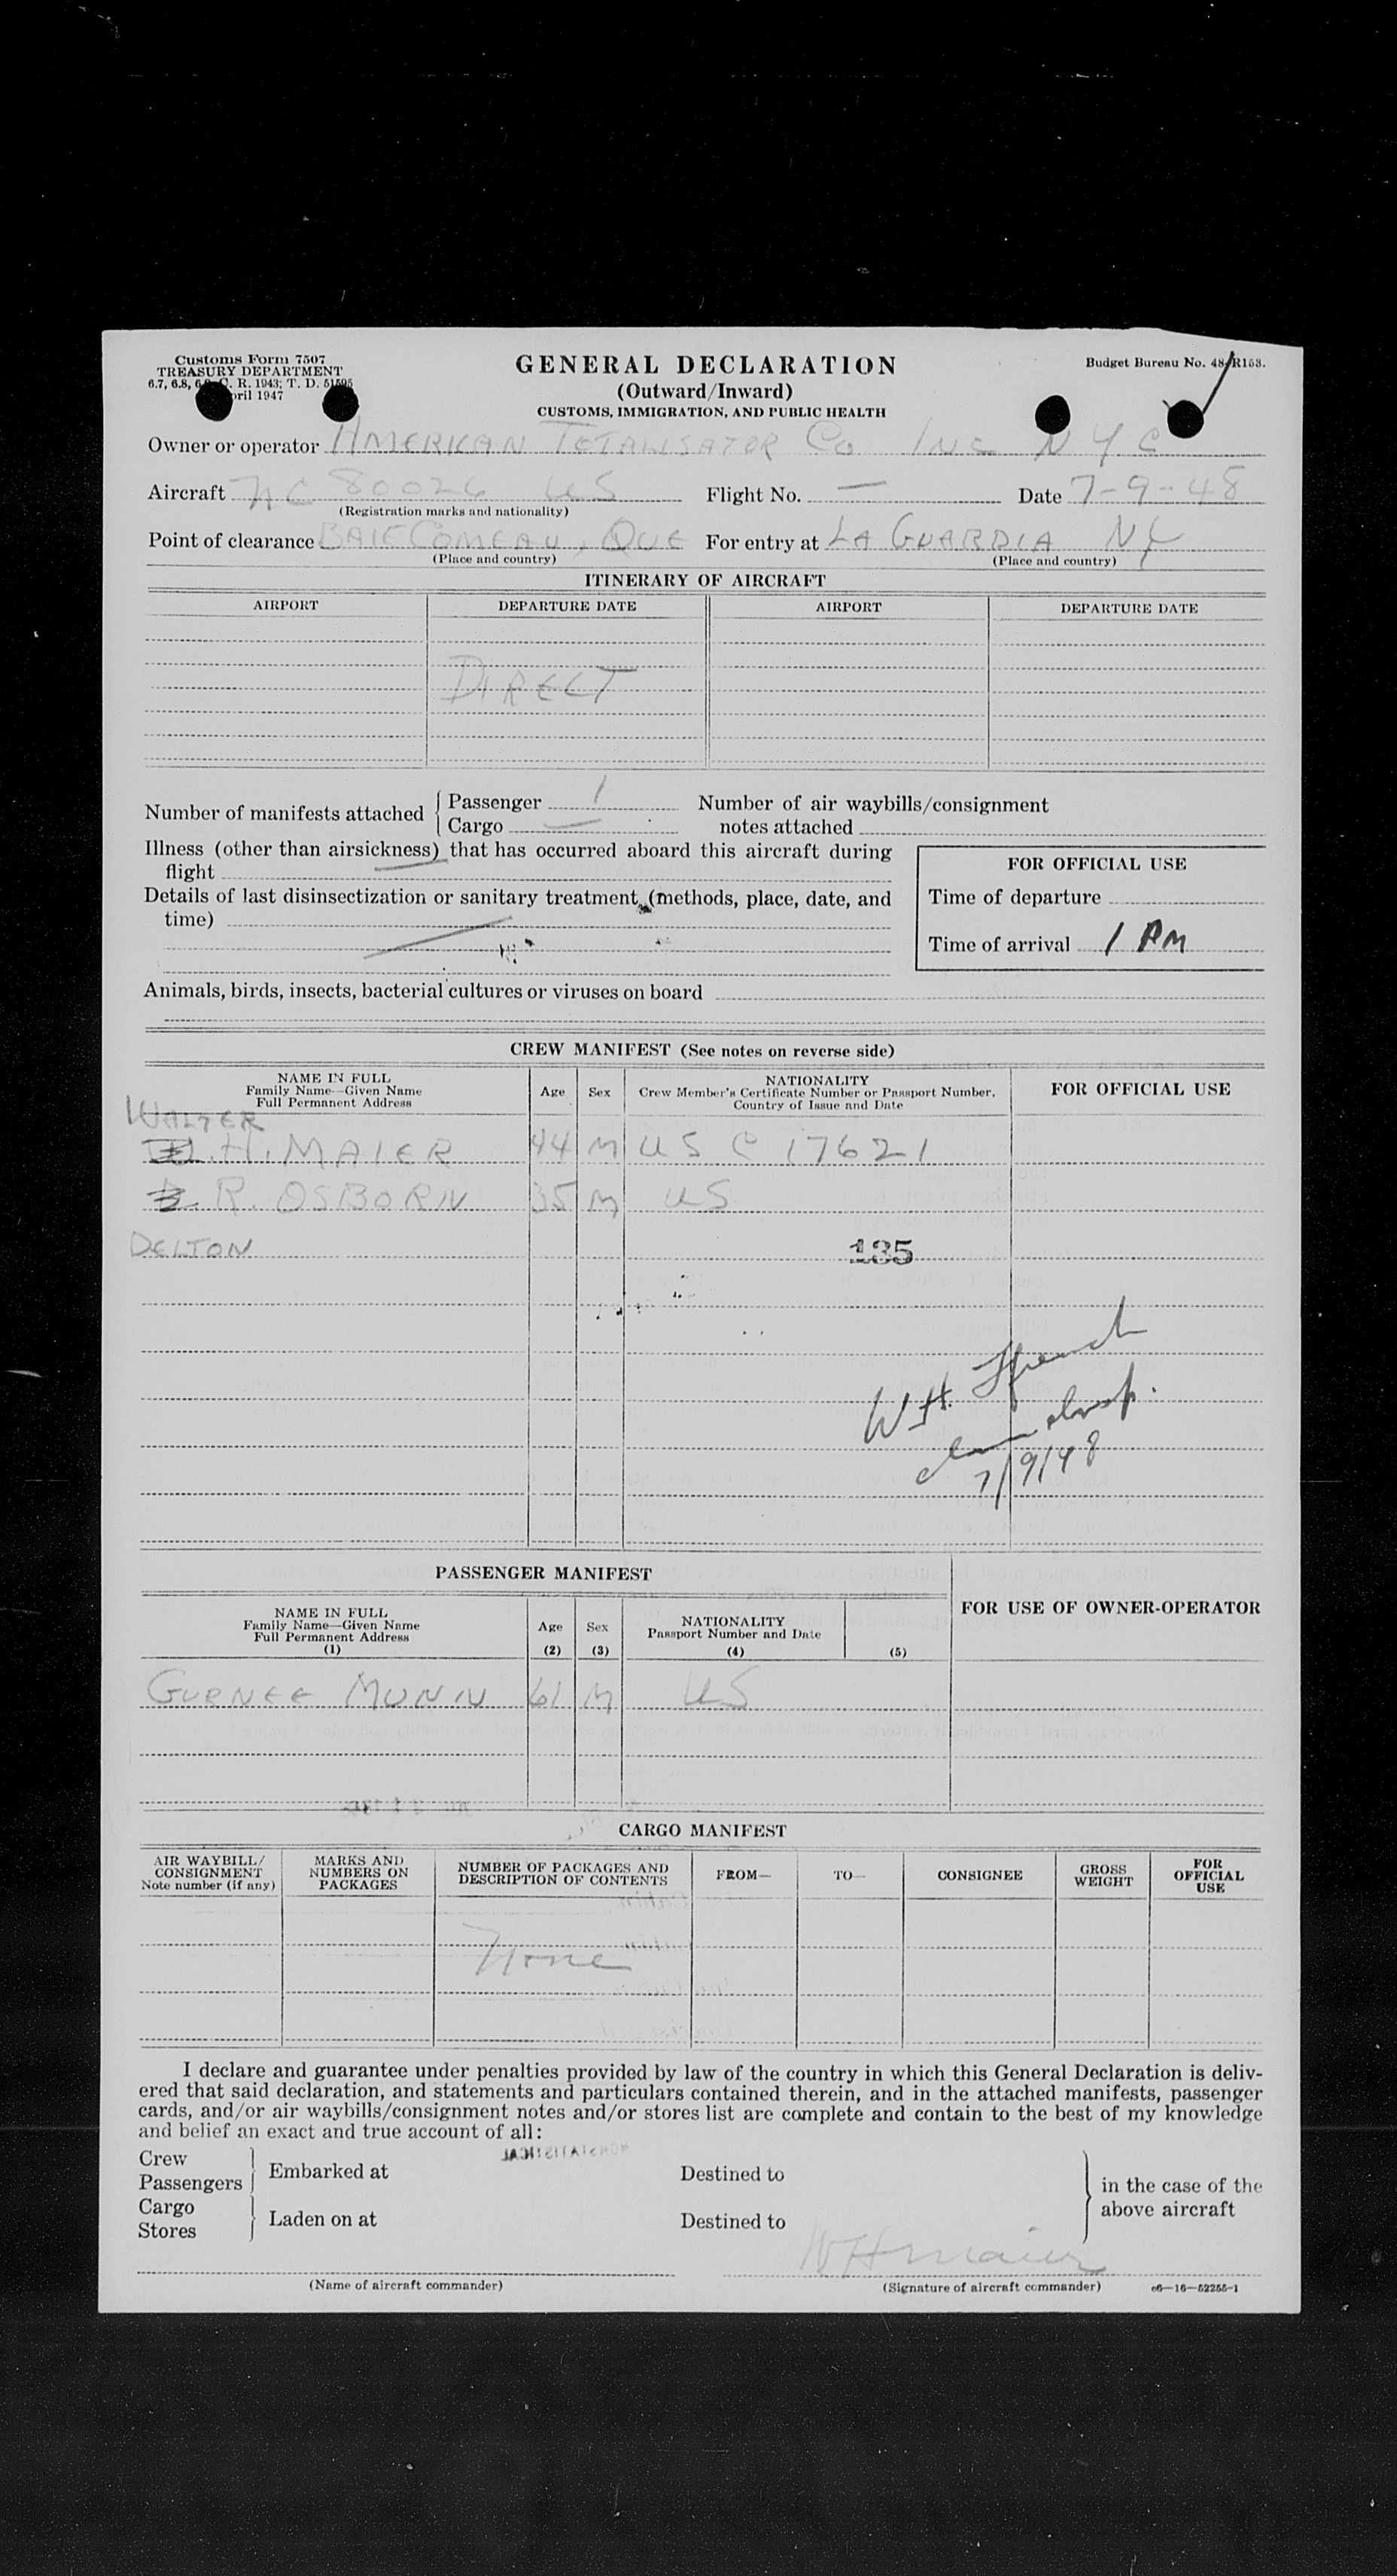 Customs Form 7507
TREASURY DEPARTMENT
6.7, 6.8, C. R. 1943; T. D. 51595
ril 1947
GENERAL DECLARATION
(Outward/Inward)
CUSTOMS, IMMIGRATION, AND PUBLIC HEALTH
Budget Bureau No. 48-R153.
Owner or operator AMERICAN TOTALISATOR CO INC N Y C
Aircraft NC 80026 US Flight No. — Date 7-9-48
(Registration marks and nationality)
Point of clearance BAIE COMEAU, QUE For entry at LA GUARDIA NY
(Place and country) (Place and country)
ITINERARY OF AIRCRAFT
AIRPORT DEPARTURE DATE AIRPORT DEPARTURE DATE
DIRECT
Number of manifests attached { Passenger 1 Number of air waybills/consignment
Cargo — notes attached
Illness (other than airsickness) that has occurred aboard this aircraft during
flight —
FOR OFFICIAL USE
Details of last disinsectization or sanitary treatment (methods, place, date, and
time)
Time of departure
Time of arrival 1 PM
Animals, birds, insects, bacterial cultures or viruses on board
CREW MANIFEST (See notes on reverse side)
NAME IN FULL
Family Name—Given Name
Full Permanent Address
Age Sex
NATIONALITY
Crew Member's Certificate Number or Passport Number,
Country of Issue and Date
FOR OFFICIAL USE
WALTER
H. MAIER 44 M US C 17621
R. OSBORN 35 M US
DELTON
135
W H
7/9/48
PASSENGER MANIFEST
FOR USE OF OWNER-OPERATOR
NAME IN FULL
Family Name—Given Name
Full Permanent Address
(1)
Age
(2)
Sex
(3)
NATIONALITY
Passport Number and Date
(4)
(5)
GURNEE MUNN 61 M US
CARGO MANIFEST
AIR WAYBILL/
CONSIGNMENT
Note number (if any)
MARKS AND
NUMBERS ON
PACKAGES
NUMBER OF PACKAGES AND
DESCRIPTION OF CONTENTS
FROM—
TO—
CONSIGNEE
GROSS
WEIGHT
FOR
OFFICIAL
USE
None
I declare and guarantee under penalties provided by law of the country in which this General Declaration is deliv-
ered that said declaration, and statements and particulars contained therein, and in the attached manifests, passenger
cards, and/or air waybills/consignment notes and/or stores list are complete and contain to the best of my knowledge
and belief an exact and true account of all:
Crew
Passengers } Embarked at Destined to
Cargo
Stores } Laden on at Destined to
} in the case of the
above aircraft
WH Maier
(Name of aircraft commander) (Signature of aircraft commander) c6—16—52255-1